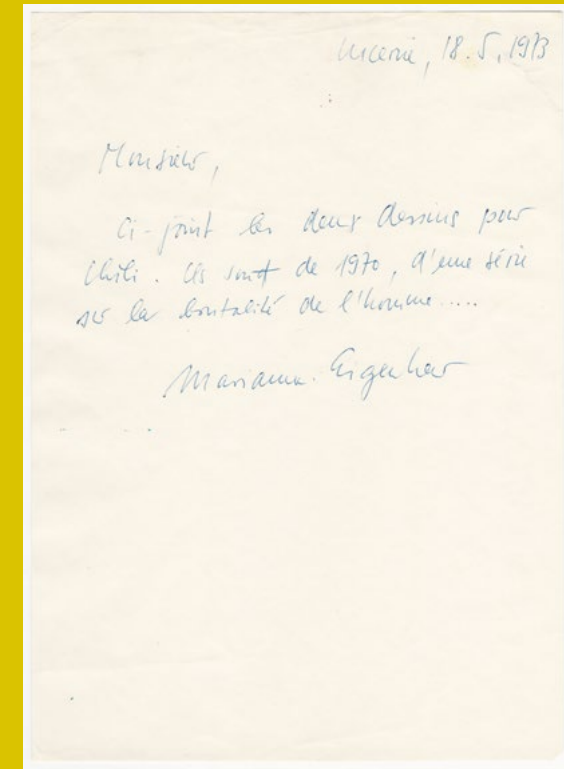 Lucerne, 18.5.1973
Monsieur,
Ci-joint les deux dessins pour
Chili. Ils sont de 1970, d'une série
sur la brutalité de l'homme.....
Marianne Eigenheer